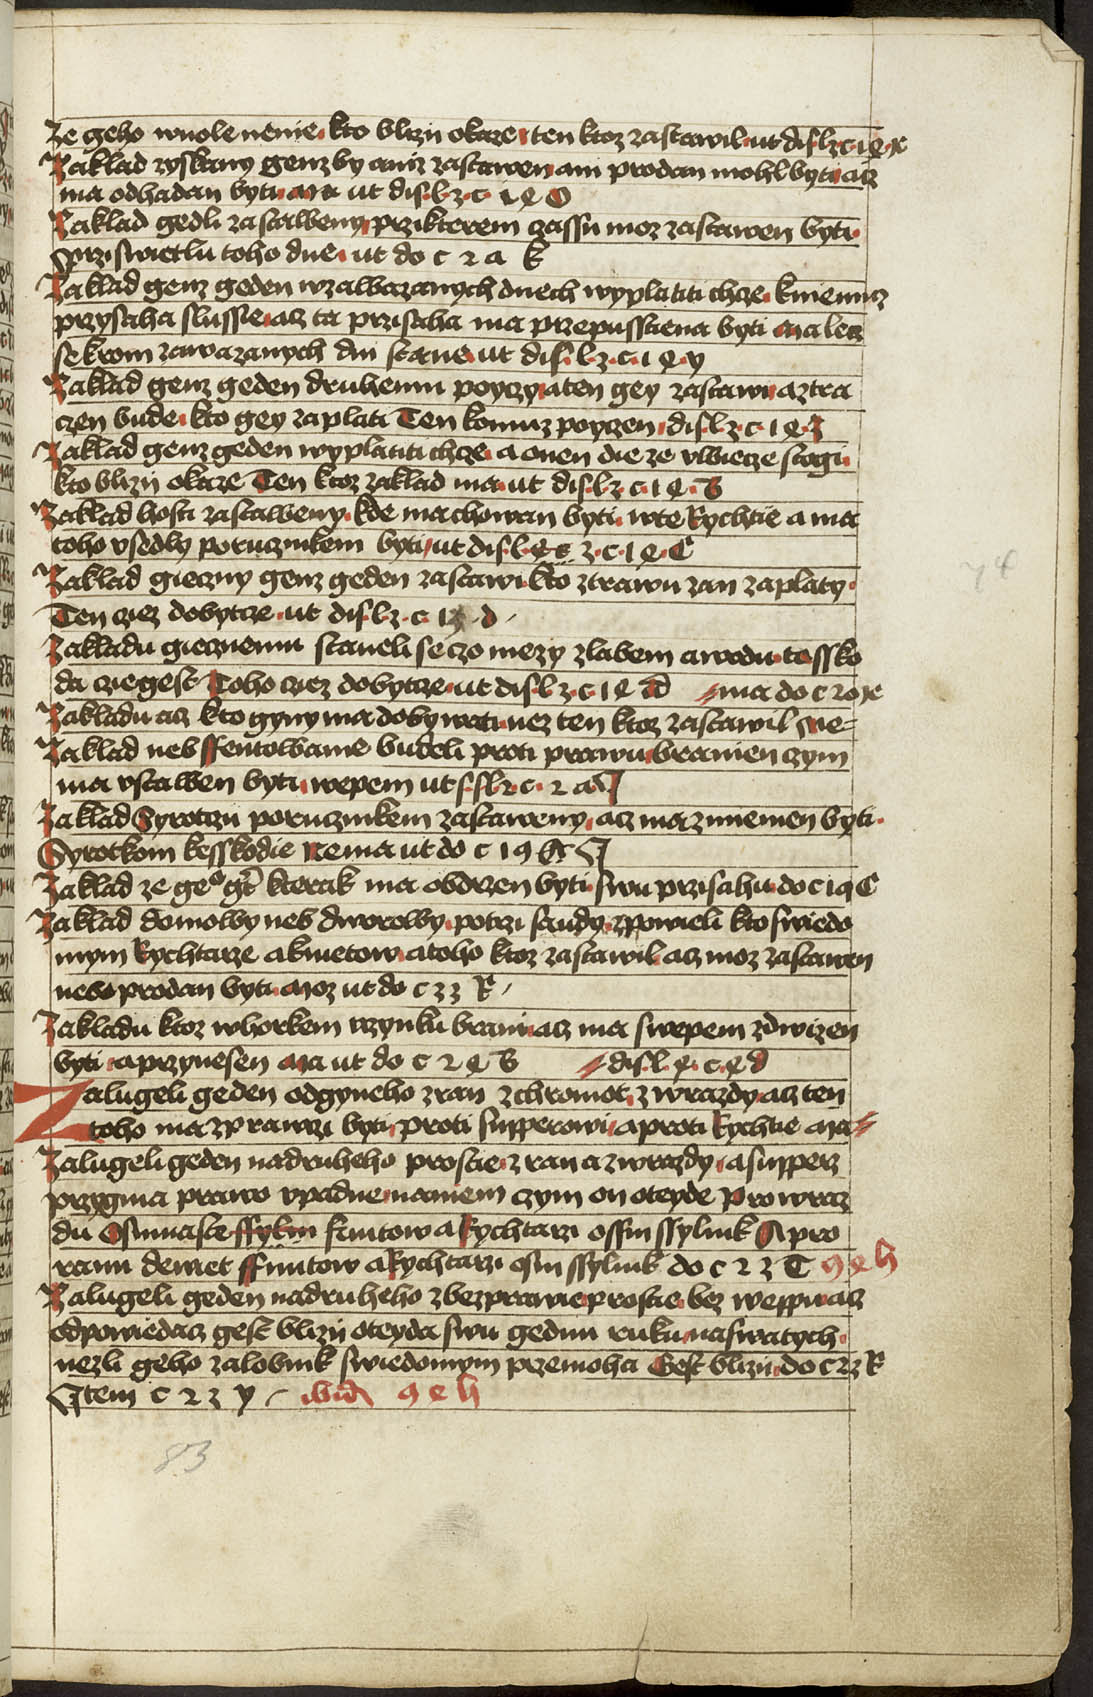 Ze geho wuole nenie kto blizij okaze ten ktoz zastawil ut dis l z c 1 e x
Zaklad zyskany genz by aniz zastawen ani prodan mohl byti acz
ma odhadan byti Ma ut dis l z c 1 e O
Zaklad gedli zastaweny przikterem czassu moz zastawen byti
Przi swietlu toho dne ut do c 2 a k
Zaklad genz geden wzalbazanych dnech wyplatiti chcze kniemuz
przysaha slussie acz ta przisaha ma przepusstiena byti Ma lecz
sekrom zawazanych dni stane ut dis l z c 1 e y
Zaklad genz geden druhemu poyczy aten gey zastawi aztra
czen bude kto gey zaplati Ten komuz poyczen dis l z c 1 e z
Zaklad genz geden wyplatiti chcze a onen die ze vwiecze stogi
kto blizij okaze Ten ktoz zaklad ma ut dis l z c 1 e B
Zaklad hosti zastaweny kde ma chowan byti wte Rychtie a ma
toho vsedly porucznikem byti ut dis l z c 1 e C
Zaklad gieczny genz geden zastawi kto ztrawu zan zaplaty
Ten ciez dobytcze ut dis l z c 1 d
Zakladu giecznemu staneli se czo mezy zlabem a wodu ta ssko
da czie gest Toho ciez dobytcze ut dis l z c 1 e d ma do c 20 x
Zakladu acz kto gyny ma dobywati nez ten ktoz zastawil Nie
Zaklad neb ssentowanie budeli proti prawu branien czym
ma vstawen byti wepem ut s l z c 2 a
Zaklad Syrotczij porucznikem zastaweny acz ma zmienien byti
Syrotkom kesskodie nema ut do c 19
Zaklad ze ge° kterak ma obdrzen byti swu przisahu do c 19 C
Zaklad domowy neb dworowy potrzi saudy zpowieli kto swiedo
mym Rychtarze akmetow a toho ktoz zastawil acz moz zastawen
nebo prodan byti Moz ut do c 23 R
Zakladu ktoz whorkem uczynku brani acz ma swepem zdwizen
byti a przynesen Ma ut do c 2 e B dis l e c e d
Zalugeli geden odgyneho zran zchromot z wrazdy acz ten
toho ma zprawczi byti proti supperowi a proti Rychtie Ma
Zalugeli geden nadruheho prostie z ran a z wrazdy a supperz
przygma prawo vpadne namem czym on oteyde Prowraz
du Osmnaste ssylin funtow a Rychtarzi ossm ssylink A pro
ranu dewiet ffuntow a Rychtarzi osm ssylink do c 2 3 T 9 e h
Zalugeli geden nadruheho zbezprawie prostie bez wepu acz
odpowiedacz gest blizij oteyda swu gednu ruku naswatych
nezli geho zalobnik swiedomym przemoha Gest blizij do c 23 R
Item c 2 3 y ibid 9 e h
83